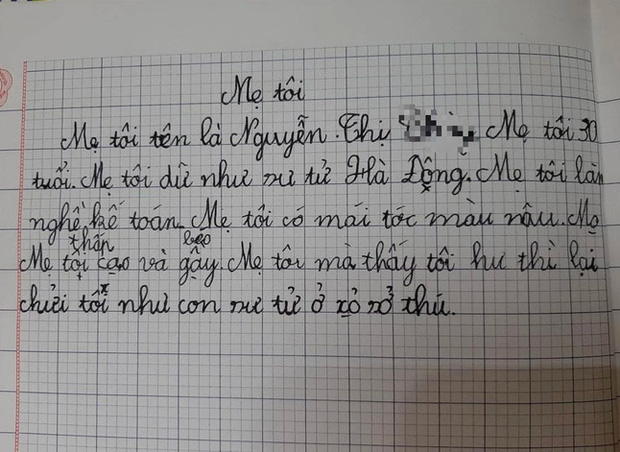 Mẹ tôi
Mẹ tôi tên là Nguyễn Thị Mẹ tôi 30
tuổi. Mẹ tôi dữ như sư tử Hà Động. Mẹ tôi làn
nghề kế toán. Mẹ tôi có mái tóc màu nâu. Mẹ
thấp béo
Mẹ tội cạo và gậy. Mẹ tôi mà thấy tôi hư thì lại
chửi tôi như con sư tử ở xỏ sở thú.